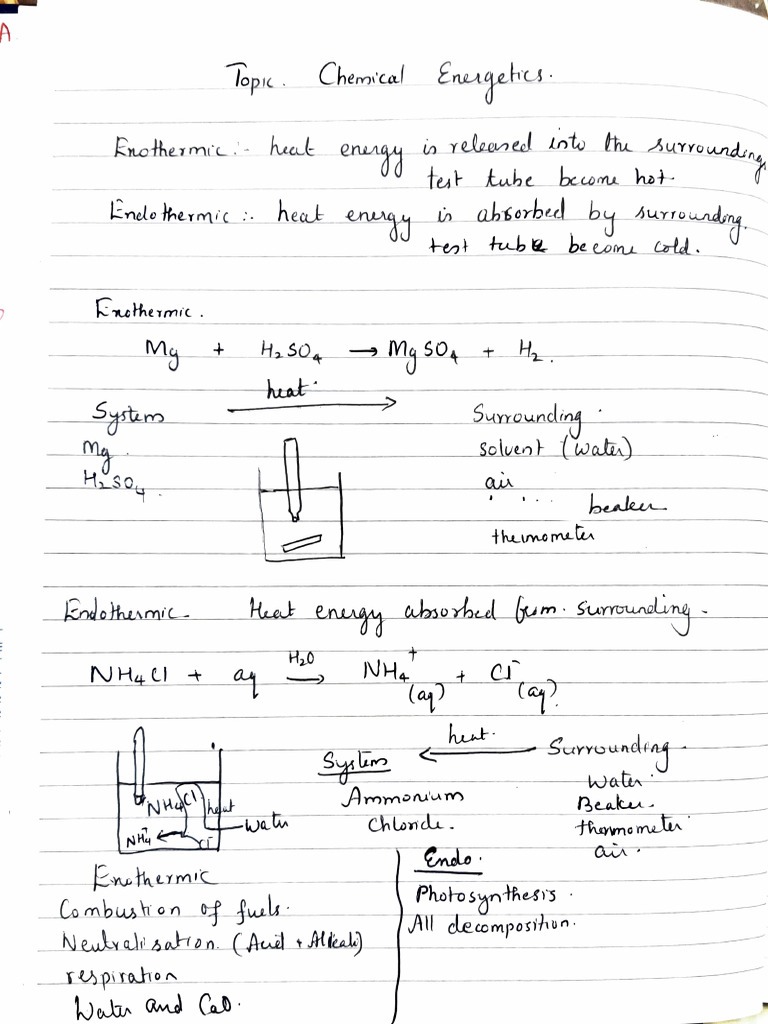 A
Topic. Chemical Energetics.
Exothermic:- heat energy is released into the surroundings
test tube become hot.
Endothermic:- heat energy is absorbed by surrounding.
test tube become cold.
Exothermic.
Mg + H₂SO₄ → MgSO₄ + H₂.
heat.
System → Surrounding.
Mg. solvent (water)
H₂SO₄. air
beaker
thermometer
Endothermic. Heat energy absorbed from. surrounding.
NH₄Cl + aq H₂O → NH₄⁺(aq) + Cl⁻(aq).
heat.
System ← Surrounding.
Ammonium Water.
Chloride. Beaker.
thermometer
air.
NH₄Cl heat
NH₄⁺ Cl⁻ Water
Exothermic
Combustion of fuels.
Neutralisation. (Acid + Alkali)
respiration
Water and CaO.
Endo.
Photosynthesis.
All decomposition.